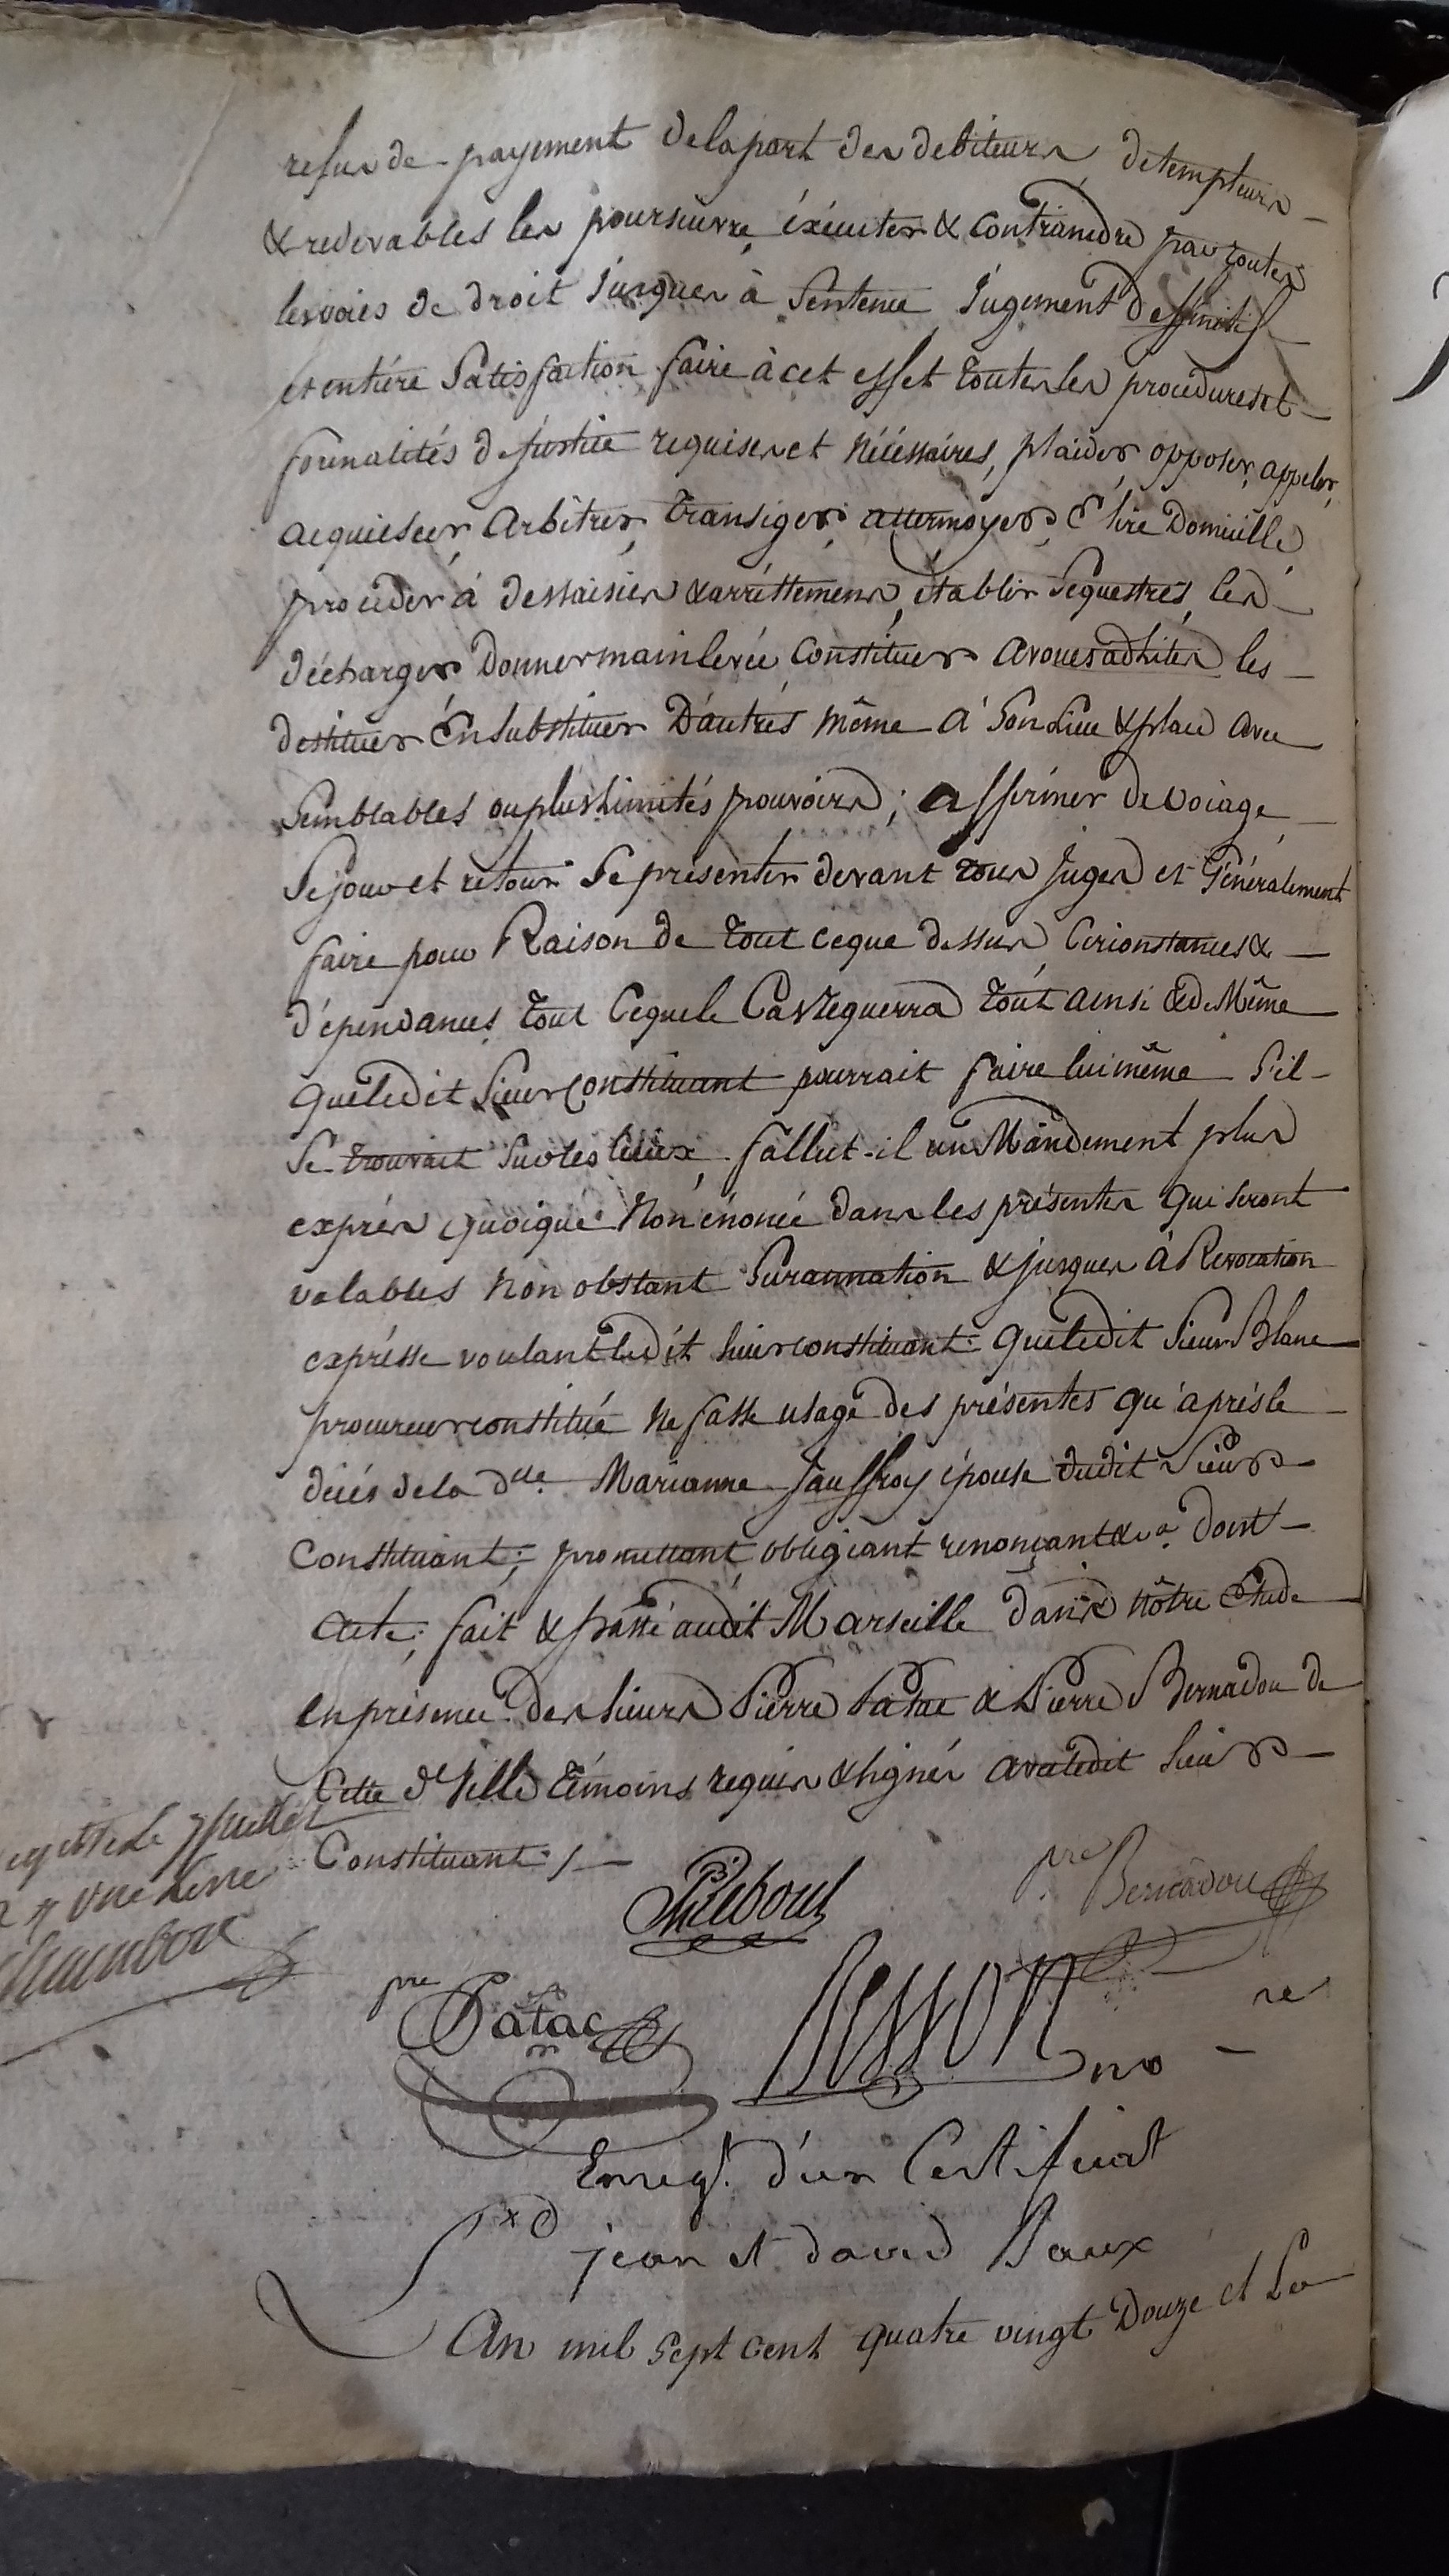 refus de payement de la part des debiteurs, detempteurs
& redevables les poursuivre, éxécuter & contraindre par toutes
les voies de droit jusques à sentence jugement deffinitif
et entiére satisfaction faire à cet effet toutes les procedures et
formalités de justice requises et nécéssaires, plaider, opposer, appeler,
acquiescer, arbitrer, transiger, attermoyer, élire domicille,
procéder à dessaisies & arréttemens, établir sequestres, les
décharger donner mainlevée constituer avoues ad lites les
destituer en substituer d'autrés même à son lieu & place avec
semblables ou plus limités pouvoirs; affirmer de voiage
sejour et retour se présenter devant tous juges et généralement
faire pour raison de tout ce que dessus, circonstances &
dépendances tout ce que le cas réquerra tout ainsi & de même
que ledit sieur constituant pourrait faire lui même s'il
se trouvait sur les lieux, fallut-il un mandement plus
exprès quoique non énoncé dans les présentes qui seront
valables non obstant surannation & jusques à revocation
exprésse voulant ledit sieur constituant que ledit sieur Blanc
procureur constitué ne fasse usage des présentes qu'aprés le
décés de la dlle. Marianne Jauffroy épouse dudit sieur
constituant; promettant, obligeant renonçant &ca. dont
acte; fait & passé audit Marseille dans nôtre étude
en présence des sieurs Pierre Patac & Pierre Bernadou de
cette ditte ville témoins requis & signés avec ledit sieur
constituant ./.
le 7 juillet
une livre
Reboul
pre Bernadou
pre Patac
Besson
no re
Enregt. d'un certificat
jean et david Baux
An mil sept cent quatre vingt douze et le